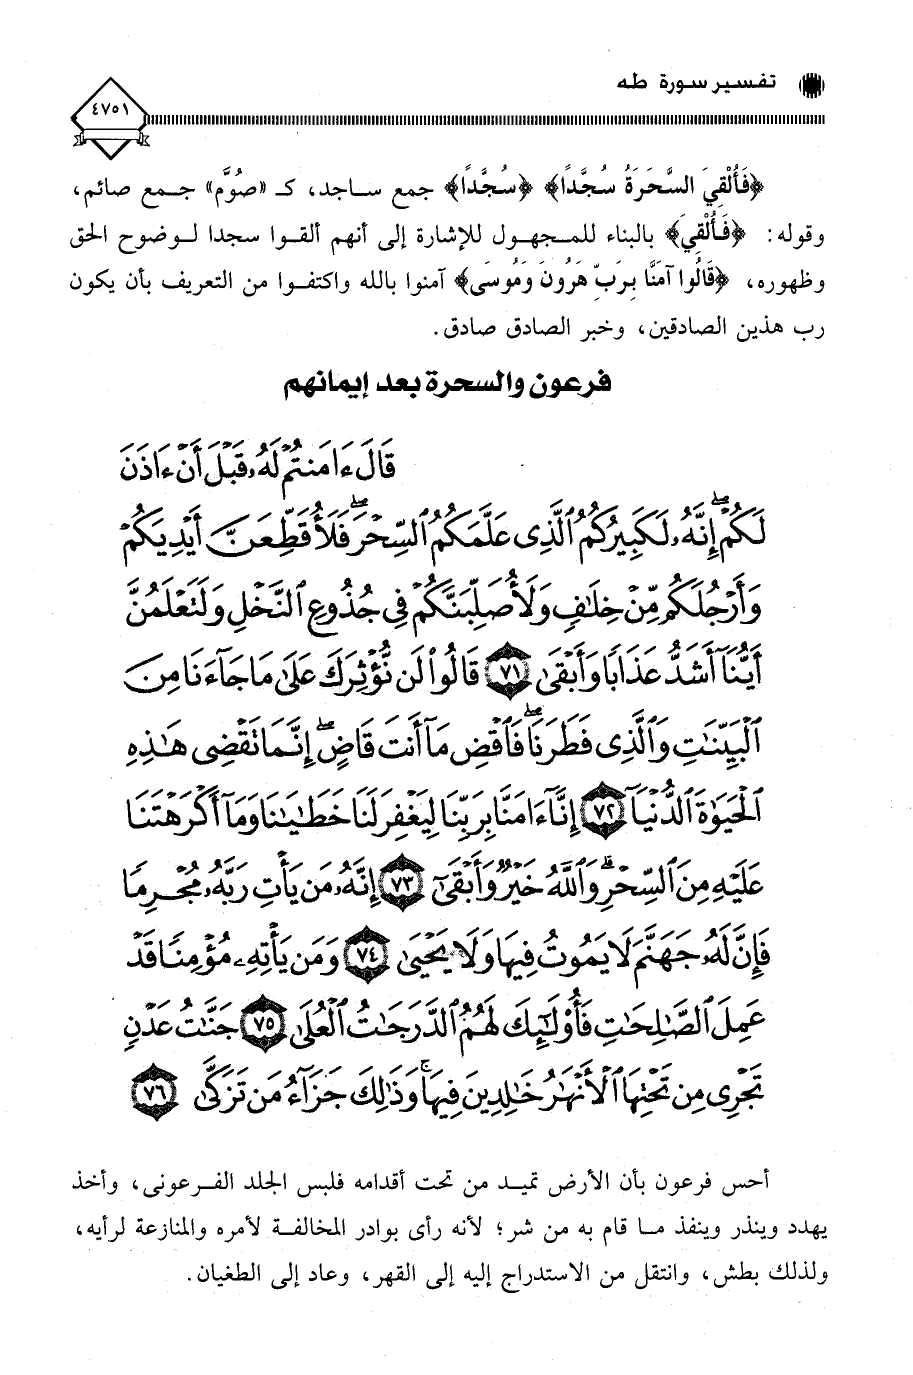 تفسير سورة طه
٤٧٥١
﴿فَأُلْقِيَ السَّحَرَةُ سُجَّدًا﴾ ﴿سُجَّدًا﴾ جمع ساجد، كـ «صُوَّم» جمع صائم،
وقوله: ﴿فَأُلْقِيَ﴾ بالبناء للمجهول للإشارة إلى أنهم ألقوا سجدا لوضوح الحق
وظهوره، ﴿قَالُوا آمَنَّا بِرَبِّ هَرُونَ وَمُوسَى﴾ آمنوا بالله واكتفوا من التعريف بأن يكون
رب هذين الصادقين، وخبر الصادق صادق.
فرعون والسحرة بعد إيمانهم
قَالَ ءَامَنتُمْ لَهُۥ قَبْلَ أَنْ ءَاذَنَ
لَكُمْ ۖ إِنَّهُۥ لَكَبِيرُكُمُ ٱلَّذِى عَلَّمَكُمُ ٱلسِّحْرَ ۖ فَلَأُقَطِّعَنَّ أَيْدِيَكُمْ
وَأَرْجُلَكُم مِّنْ خِلَـٰفٍ وَلَأُصَلِّبَنَّكُمْ فِى جُذُوعِ ٱلنَّخْلِ وَلَتَعْلَمُنَّ
أَيُّنَآ أَشَدُّ عَذَابًا وَأَبْقَىٰ ٧١ قَالُوا۟ لَن نُّؤْثِرَكَ عَلَىٰ مَا جَآءَنَا مِنَ
ٱلْبَيِّنَـٰتِ وَٱلَّذِى فَطَرَنَا ۖ فَٱقْضِ مَآ أَنتَ قَاضٍ ۖ إِنَّمَا تَقْضِى هَـٰذِهِ
ٱلْحَيَوٰةَ ٱلدُّنْيَآ ٧٢ إِنَّآ ءَامَنَّا بِرَبِّنَا لِيَغْفِرَ لَنَا خَطَـٰيَـٰنَا وَمَآ أَكْرَهْتَنَا
عَلَيْهِ مِنَ ٱلسِّحْرِ ۗ وَٱللَّهُ خَيْرٌ وَأَبْقَىٰٓ ٧٣ إِنَّهُۥ مَن يَأْتِ رَبَّهُۥ مُجْرِمًا
فَإِنَّ لَهُۥ جَهَنَّمَ لَا يَمُوتُ فِيهَا وَلَا يَحْيَىٰ ٧٤ وَمَن يَأْتِهِۦ مُؤْمِنًا قَدْ
عَمِلَ ٱلصَّـٰلِحَـٰتِ فَأُو۟لَـٰٓئِكَ لَهُمُ ٱلدَّرَجَـٰتُ ٱلْعُلَىٰ ٧٥ جَنَّـٰتُ عَدْنٍ
تَجْرِى مِن تَحْتِهَا ٱلْأَنْهَـٰرُ خَـٰلِدِينَ فِيهَا ۚ وَذَٰلِكَ جَزَآءُ مَن تَزَكَّىٰ ٧٦
أحس فرعون بأن الأرض تميد من تحت أقدامه فلبس الجلد الفرعونى، وأخذ
يهدد وينذر وينفذ ما قام به من شر؛ لأنه رأى بوادر المخالفة لأمره والمنازعة لرأيه،
ولذلك بطش، وانتقل من الاستدراج إليه إلى القهر، وعاد إلى الطغيان.